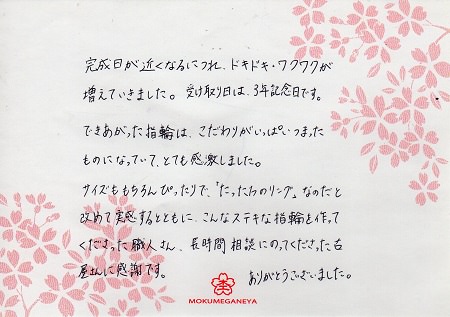 完成日が近くなるにつれ、ドキドキ・ワクワクが
増えていきました。受け取り日は、3年記念日です。
できあがった指輪は、こだわりがいっぱいつまった
ものになっていて、とても感激しました。
サイズももちろんぴったりで、「たった1つのリング」なのだと
改めて実感するとともに、こんなステキな指輪を作って
くださった職人さん、長時間相談にのってくださった古
屋さんに感謝です。
ありがとうございました。
MOKUMEGANEYA